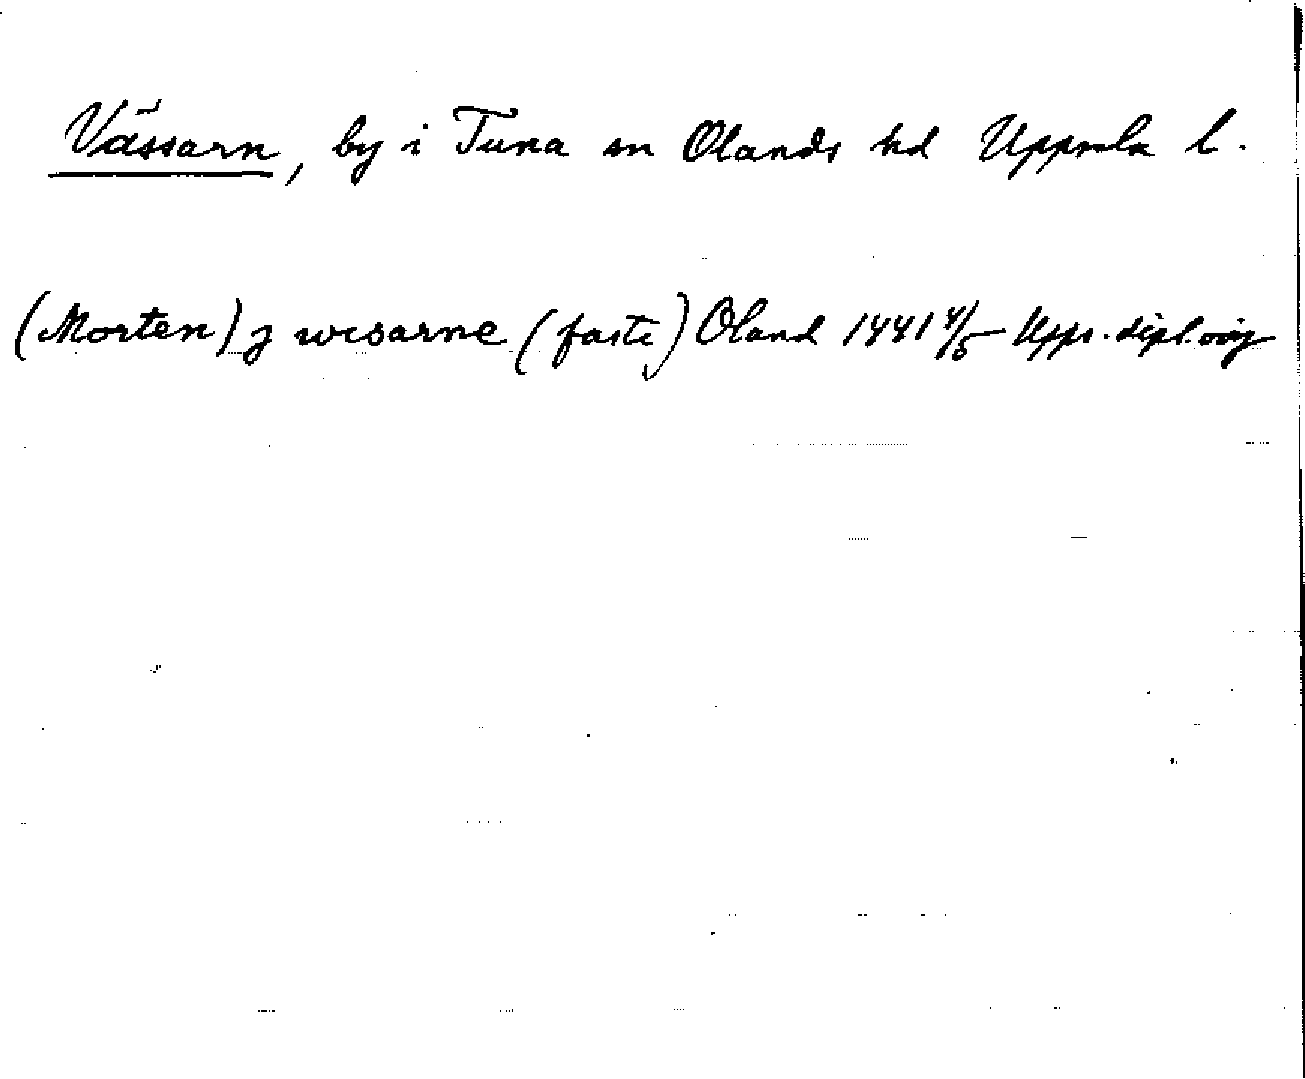 Vässarn, by i Tuna sn Olands hd Uppsala l.
(Morten) j wesarne (faste) Oland 1441 4/5 Upps. dipl. orig